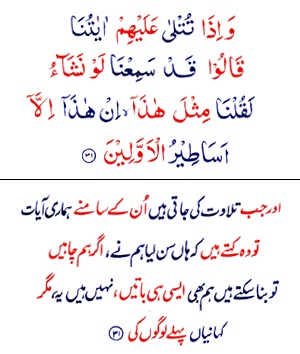 وَ اِذَا تُتْلٰی عَلَيْهِمْ اٰيٰتُنَا
قَالُوْا قَدْ سَمِعْنَا لَوْ نَشَآءُ
لَقُلْنَا مِثْلَ هٰذَاۤ ۙ اِنْ هٰذَاۤ اِلَّاۤ
اَسَاطِيْرُ الْاَوَّلِيْنَ ۝۳۱
اور جب تلاوت کی جاتی ہیں اُن کے سامنے ہماری آیات
تو وہ کہتے ہیں کہ ہاں سن لیا ہم نے، اگر ہم چاہیں
تو بنا سکتے ہیں ہم بھی ایسی ہی باتیں، نہیں ہیں یہ، مگر
کہانیاں پہلے لوگوں کی ۝۳۱